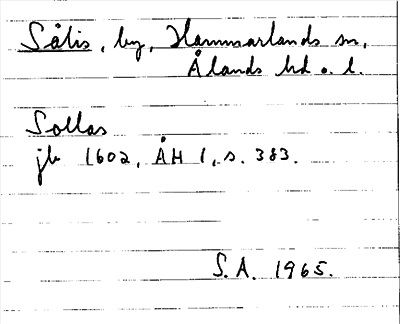 Sålis, by, Hammarlands sn,
Ålands hd o. l.
Sollas
jb 1602, ÅH 1, s. 383.
S.A. 1965.